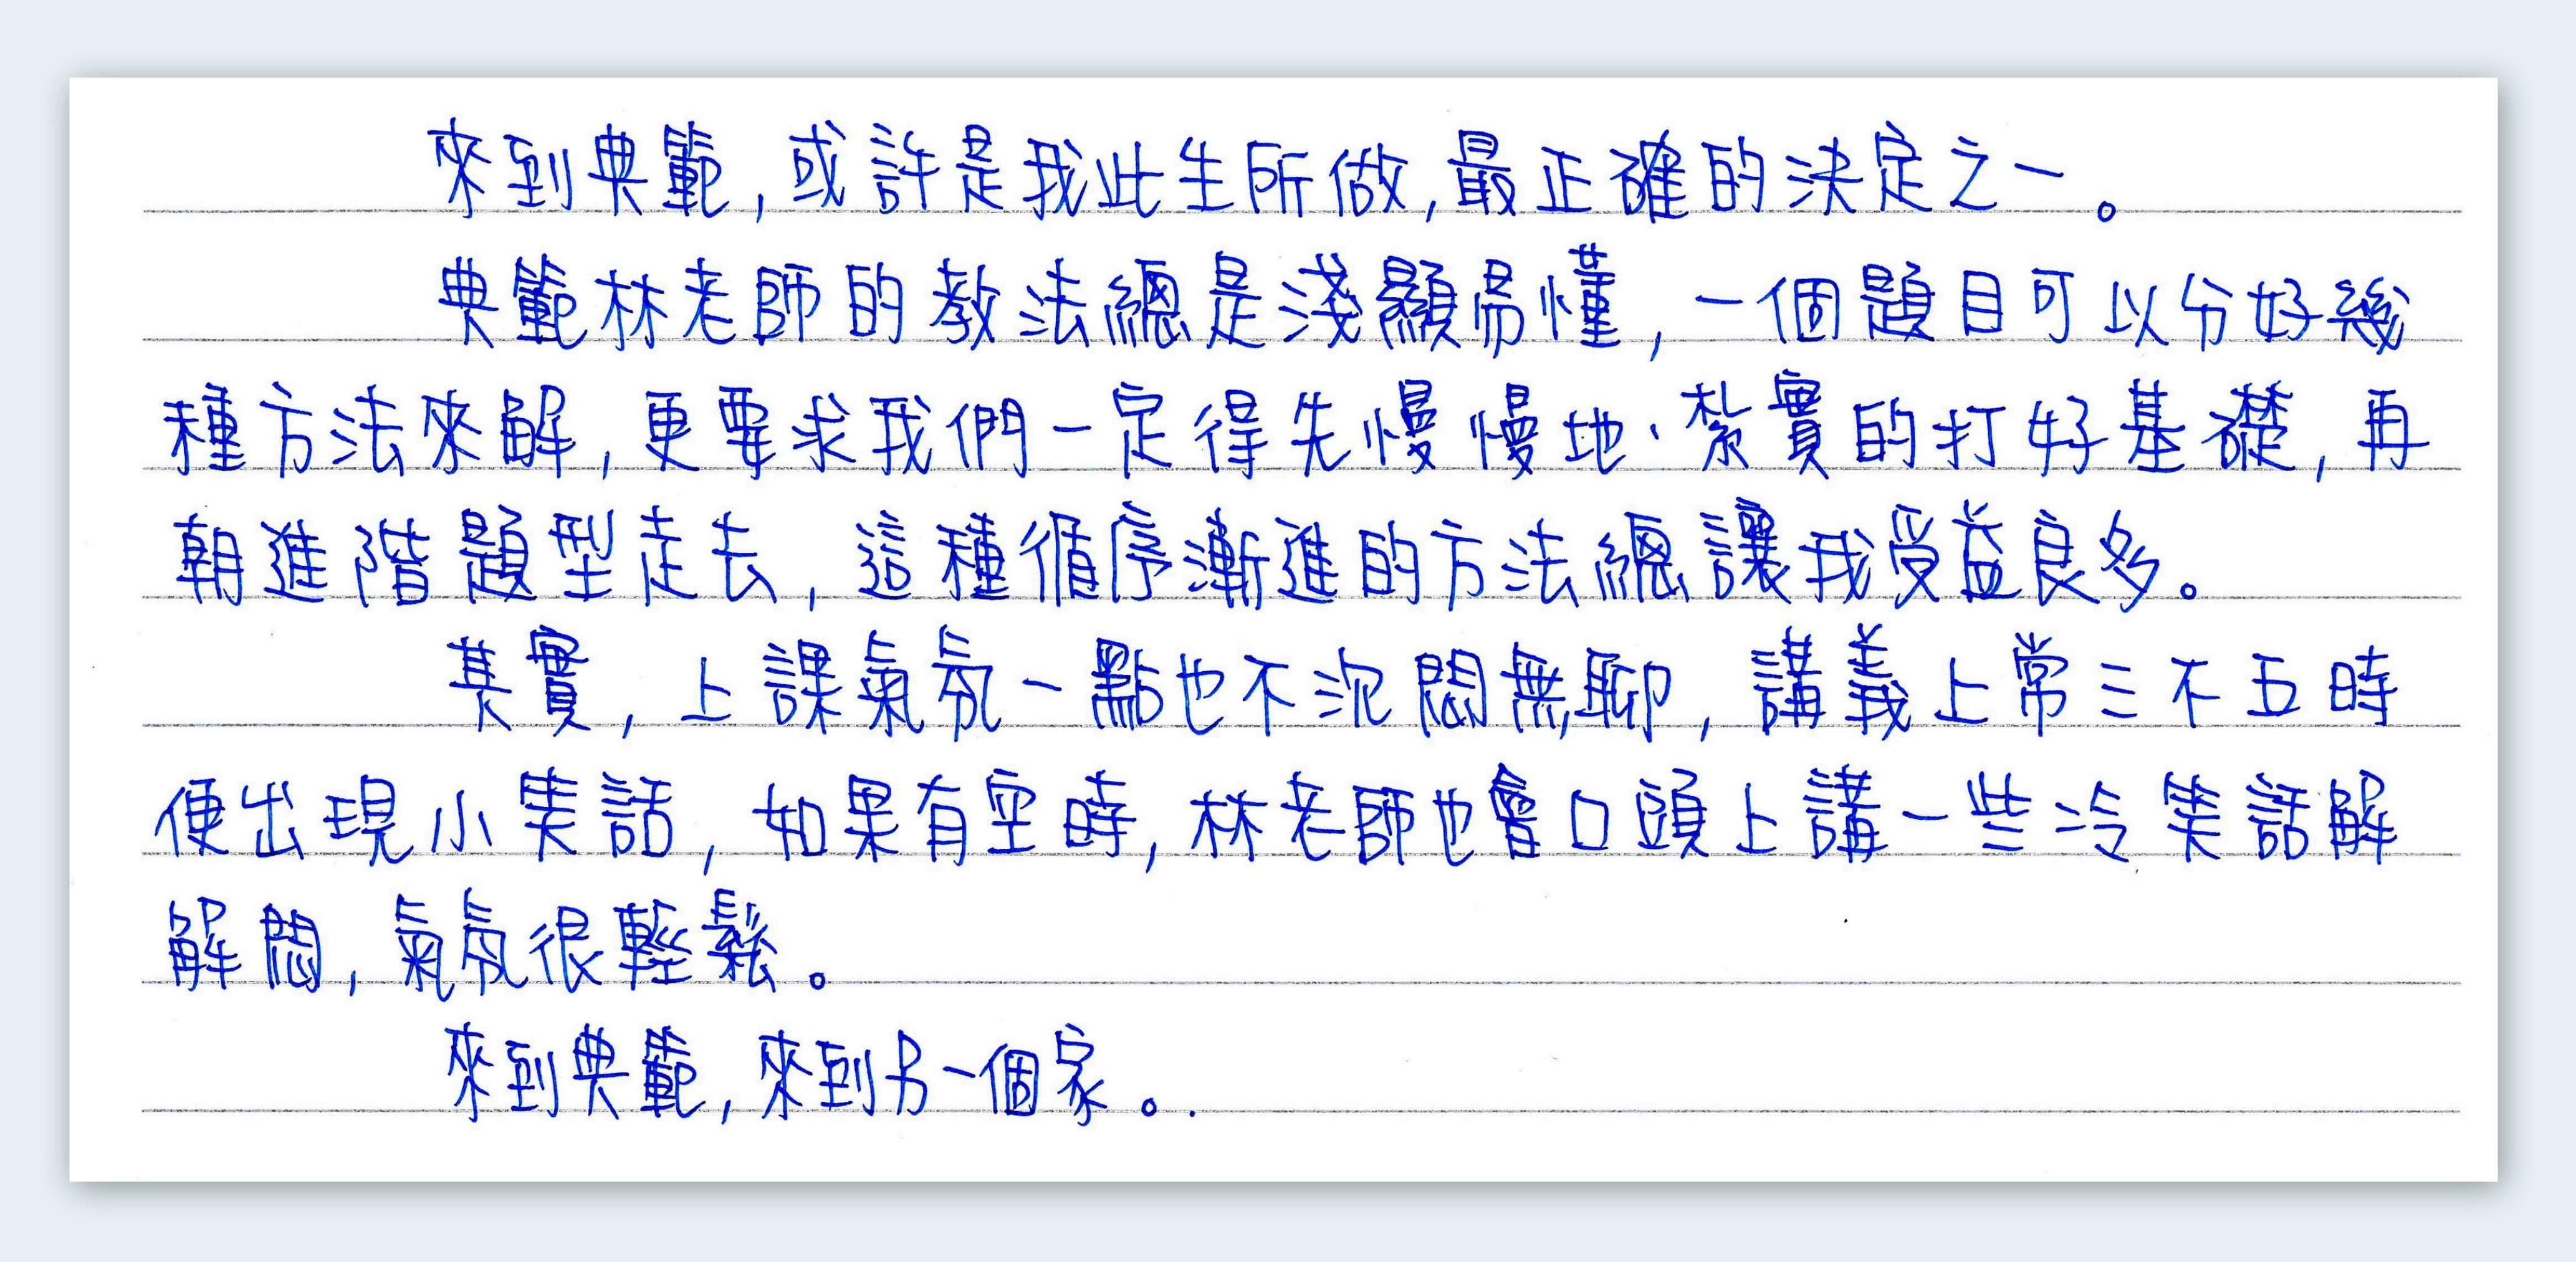 來到典範,或許是我此生所做,最正確的決定之一。
典範林老師的教法總是淺顯易懂,一個題目可以分好幾
種方法來解,更要求我們一定得先慢慢地、紮實的打好基礎,再
朝進階題型走去,這種循序漸進的方法總讓我受益良多。
其實,上課氣氛一點也不沉悶無聊,講義上常三不五時
便出現小笑話,如果有空時,林老師也會口頭上講一些冷笑話解
解悶,氣氛很輕鬆。
來到典範,來到另一個家。